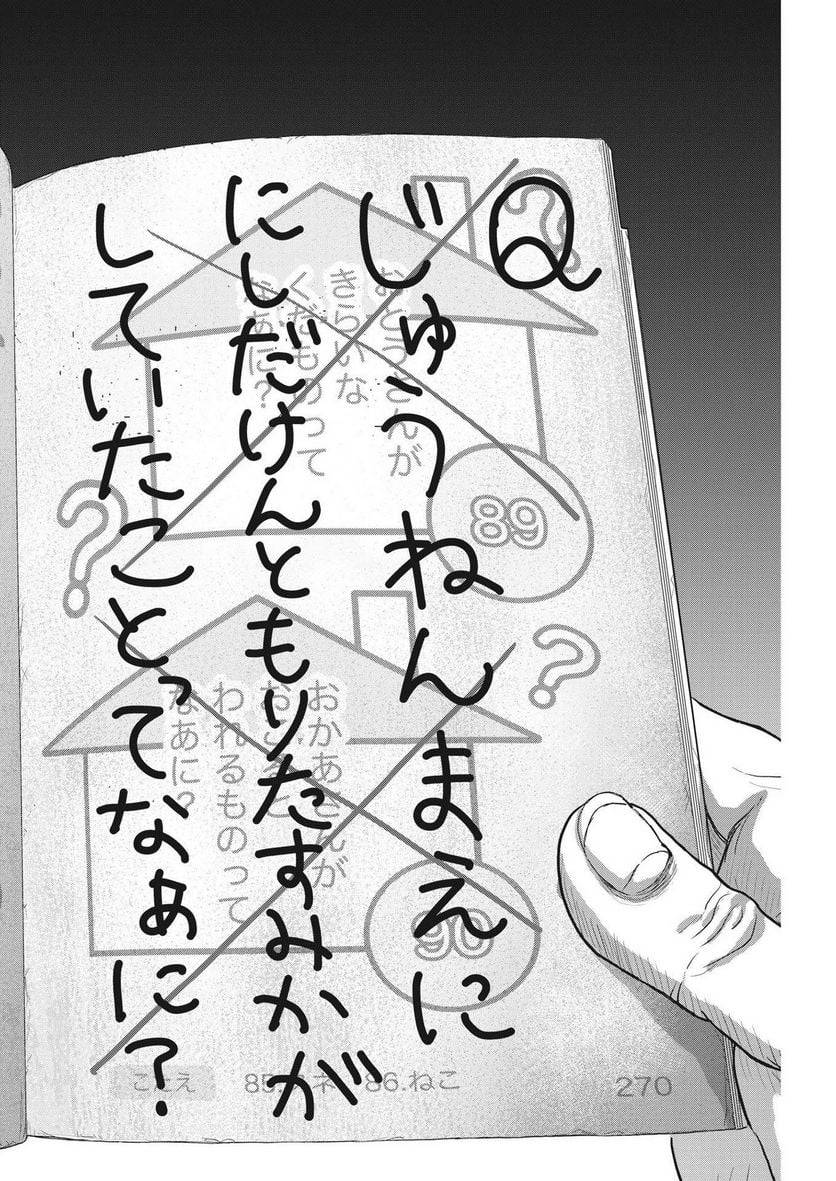 Q
じゅうねんまえに
にしだけんともりたすみかが
していたことってなぁに？
おとうさんが
きらいな
くだものって
なあに？
89
おかあさんが
おこると
われるものって
なあに？
90
こたえ
86.ねこ
270